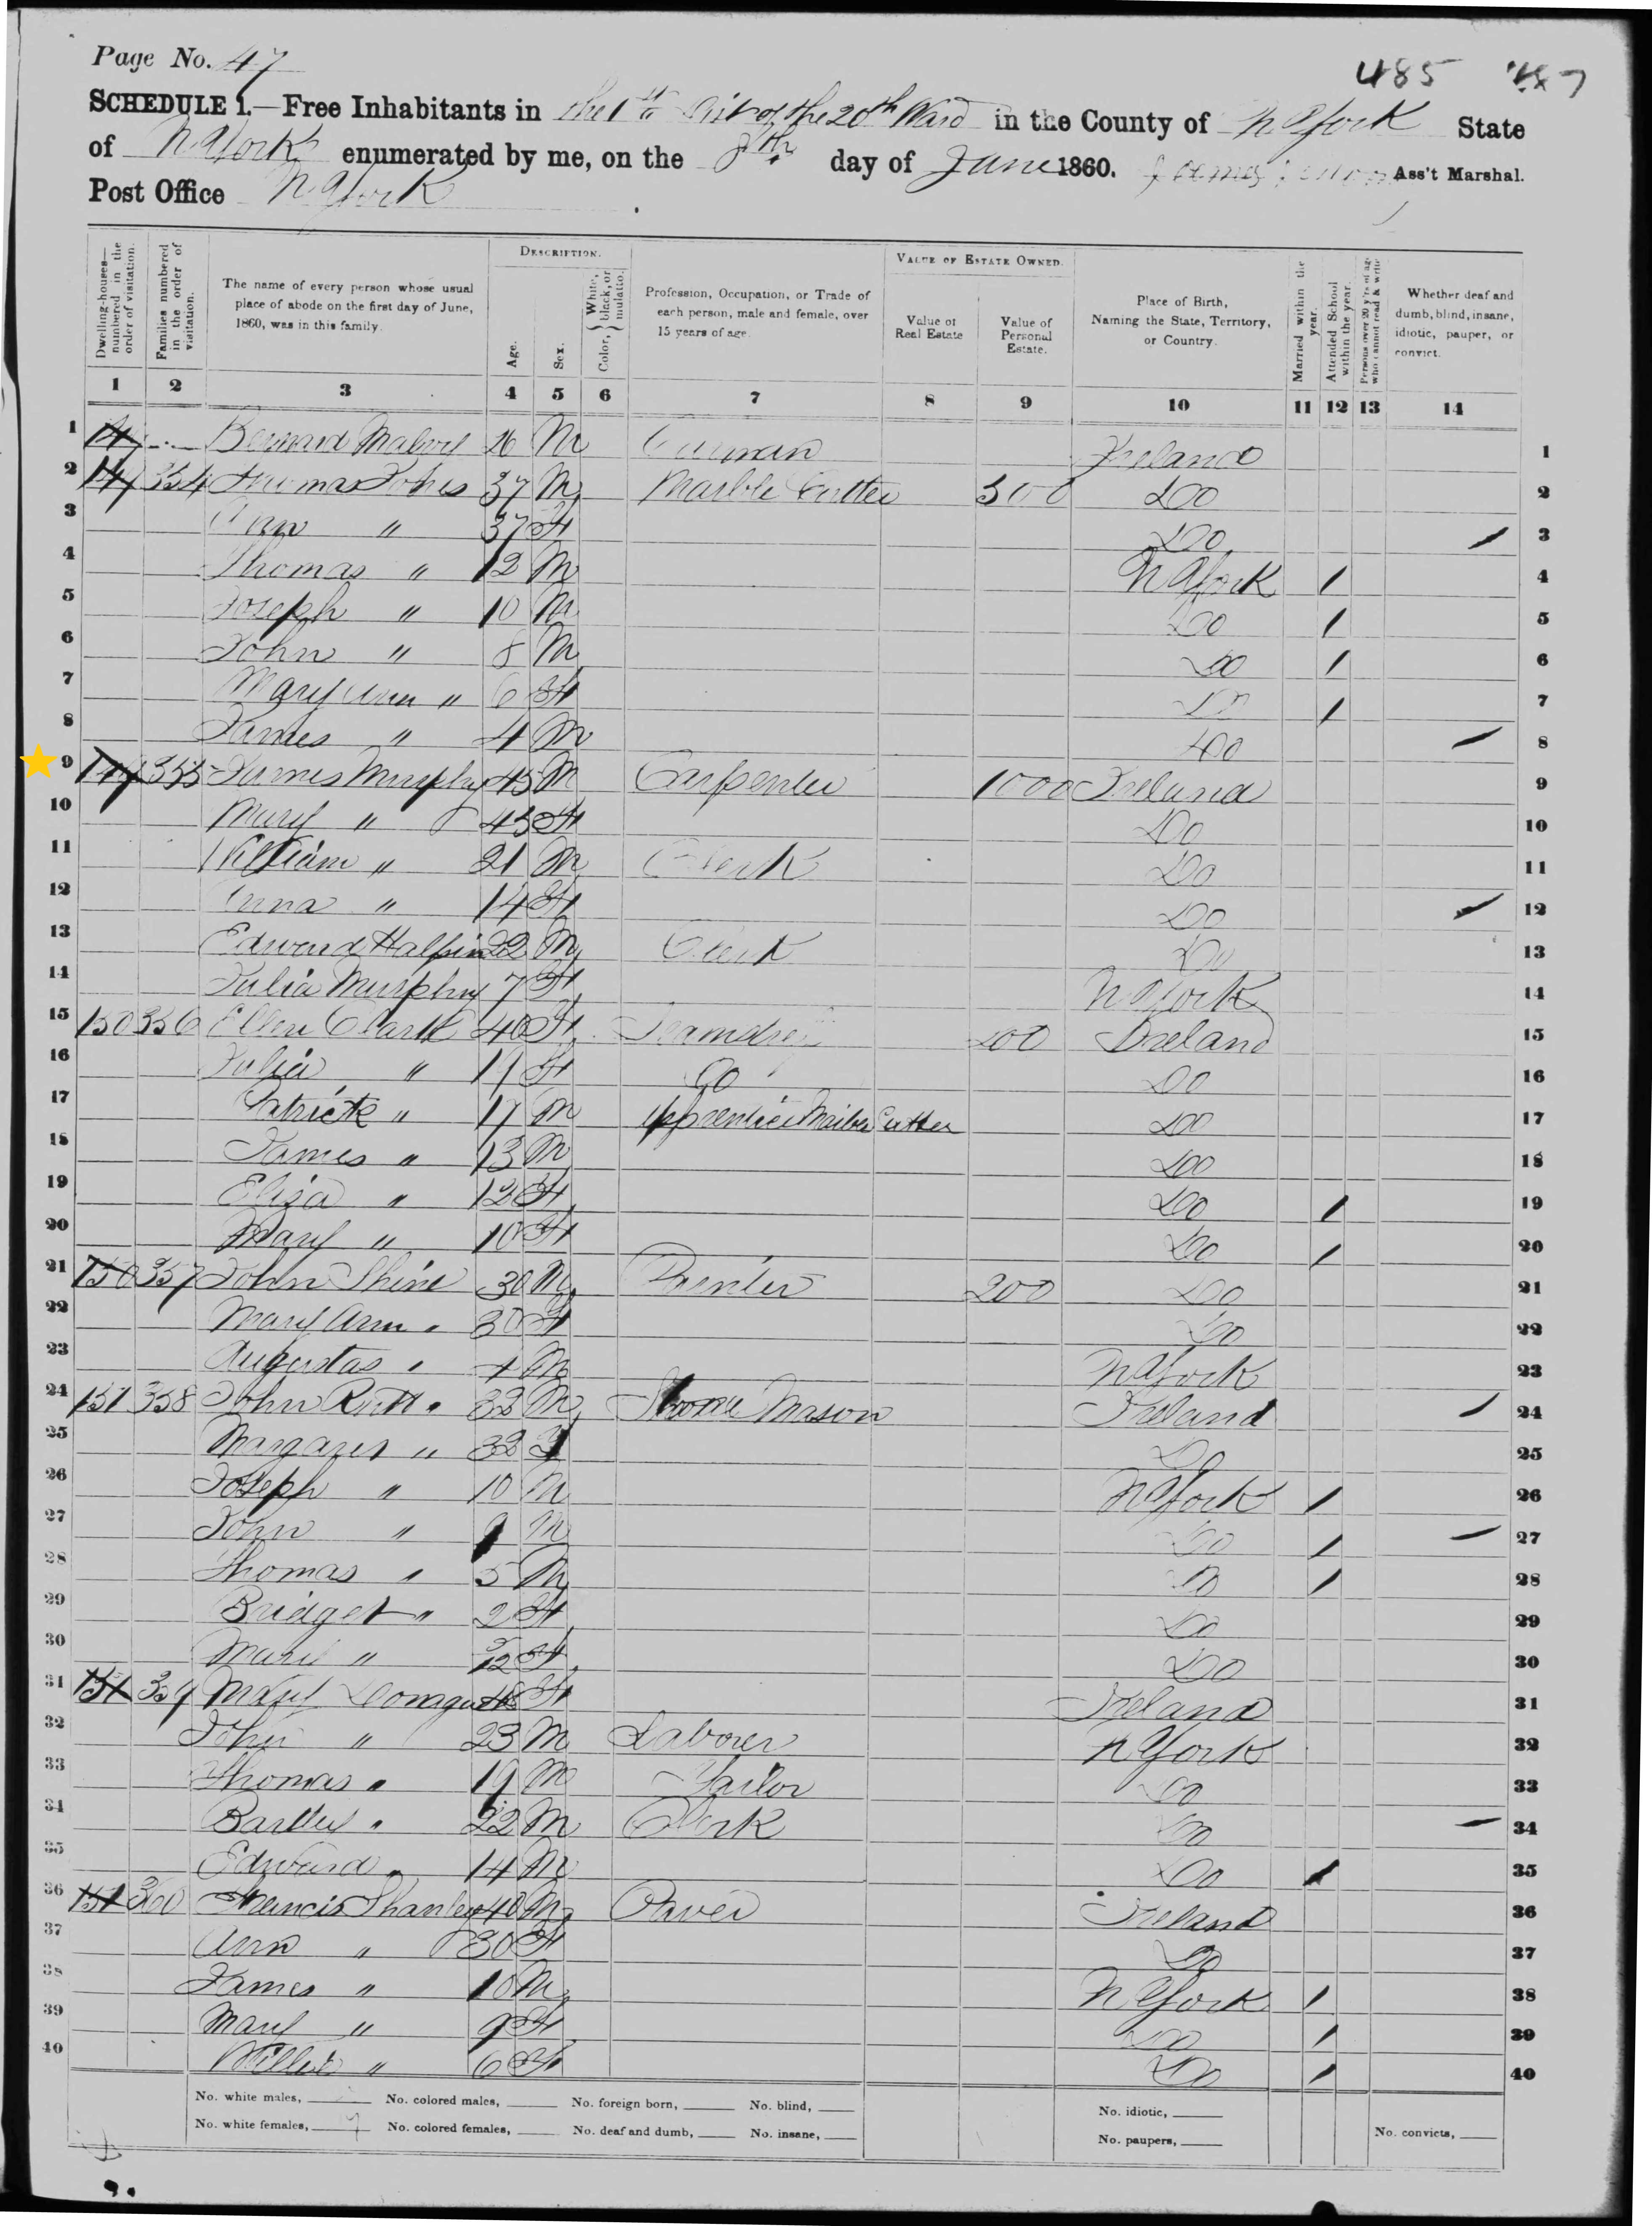 Page No. 47
485 487
SCHEDULE 1.—Free Inhabitants in the 1st of the 20th Ward in the County of N York State
of N York enumerated by me, on the 8th day of June 1860. Ass't Marshal.
Post Office N York
Dwelling-houses—numbered in the order of visitation.
Families numbered in the order of visitation.
The name of every person whose usual place of abode on the first day of June, 1860, was in this family.
DESCRIPTION.
Age.
Sex.
Color, { White, black, or mulatto.
Profession, Occupation, or Trade of each person, male and female, over 15 years of age.
VALUE OF ESTATE OWNED.
Value of Real Estate
Value of Personal Estate.
Place of Birth, Naming the State, Territory, or Country.
Married within the year.
Attended School within the year.
Persons over 20 y'rs of age who cannot read & write
Whether deaf and dumb, blind, insane, idiotic, pauper, or convict.
1 2 3 4 5 6 7 8 9 10 11 12 13 14
1 Bernard 26 M Ireland 1
2 354 Thomas 37 M Marble Cutter 300 Do 2
3 Ann " 37 F Do 3
4 Thomas " 12 M N York / 4
5 Joseph " 10 M Do / 5
6 John " 8 M Do / 6
7 Mary Ann " 6 F Do / 7
8 James " 4 M Do 8
9 149 355 James Murphy 45 M Carpenter 1000 Ireland 9
10 Mary " 45 F Do 10
11 William " 21 M Clerk Do 11
12 Anna " 14 F Do 12
13 Edward Halpin 22 M Clerk Do 13
14 Julia Murphy 7 F N York 14
15 150 356 Ellen Clark 40 F Seamstress 200 Ireland 15
16 Julia " 19 F Do Do 16
17 Patrick " 17 M Apprentice Marble Cutter Do 17
18 James " 13 M Do 18
19 Eliza " 12 F Do / 19
20 Mary " 10 F Do / 20
21 150 357 John Shine 30 M Painter 200 Do 21
22 Mary Ann " 30 F Do 22
23 Augustas " 4 M N York 23
24 151 358 John " 32 M Stone Mason Ireland 24
25 Margaret " 32 F Do 25
26 Joseph " 10 M N York / 26
27 John " 9 M Do / 27
28 Thomas " 5 M Do / 28
29 Bridget " 2 F Do 29
30 Mary " 5/12 F Do 30
31 151 359 Mary 48 F Ireland 31
32 John " 23 M Laborer N York 32
33 Thomas " 19 M Tailor Do 33
34 " 22 M Clerk Do 34
35 Edward " 14 M Do / 35
36 151 360 Francis Shanley 40 M Paver Ireland 36
37 Ann " 30 F Do 37
38 James " 10 M N York / 38
39 Mary " 9 F Do / 39
40 " 6 F Do / 40
No. white males, No. colored males, No. foreign born, No. blind, No. idiotic,
No. white females, No. colored females, No. deaf and dumb, No. insane, No. paupers, No. convicts,